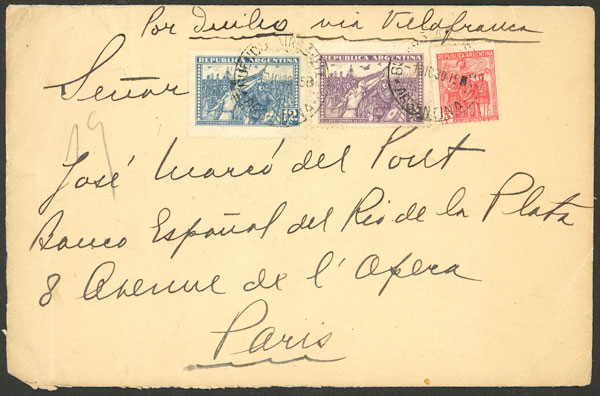 Por Duilio via Villafranca
REPUBLICA ARGENTINA
REPUBLICA ARGENTINA
REPUBLICA ARGENTINA
BUENOS AIRES
ARGENTINA
ARGENTINA
12
Señor
19
José Marcó del Pont
Banco Español del Rio de la Plata
8 Avenue de l'Opera
Paris